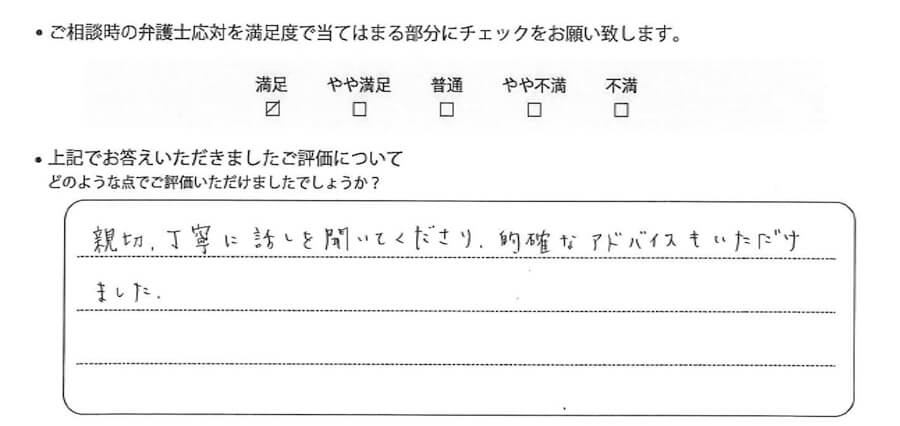 • ご相談時の弁護士応対を満足度で当てはまる部分にチェックをお願い致します。
満足 やや満足 普通 やや不満 不満
☑ □ □ □ □
• 上記でお答えいただきましたご評価について
どのような点でご評価いただけましたでしょうか？
親切、丁寧に話しを聞いてくださり、的確なアドバイスもいただけ
ました。